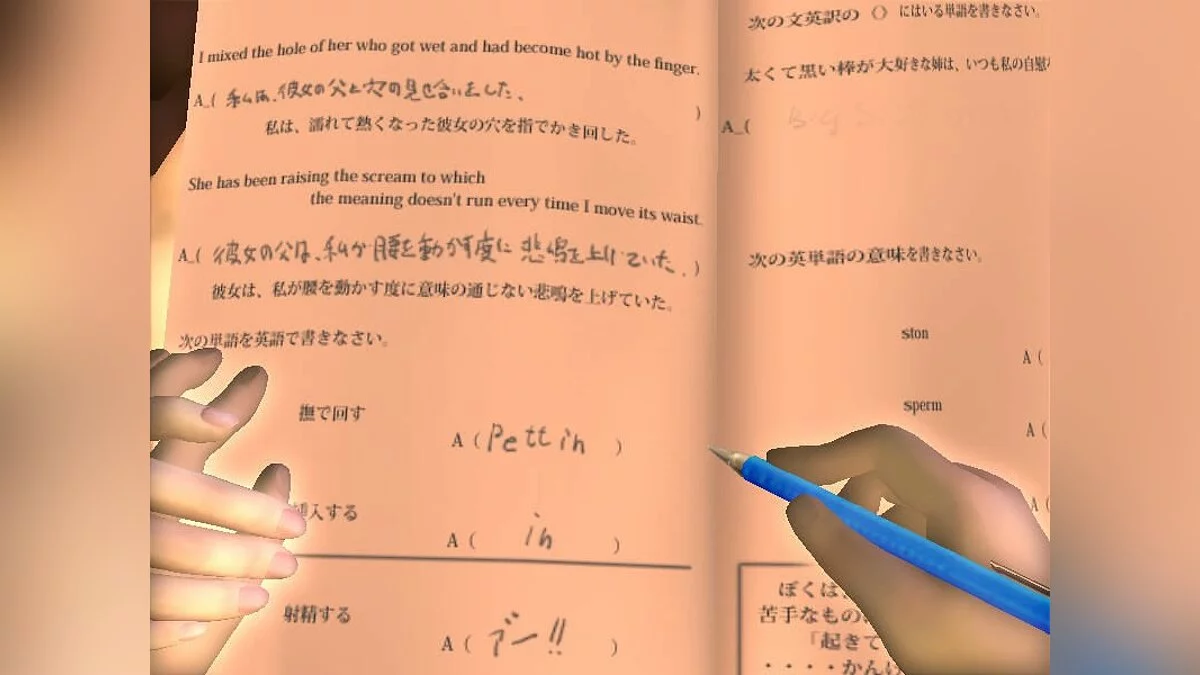 I mixed the hole of her who got wet and had become hot by the finger.
A_( 私は、彼女の父と穴の見せ合いをした、 )
私は、濡れて熱くなった彼女の穴を指でかき回した。
She has been raising the scream to which
the meaning doesn't run every time I move its waist.
A_( 彼女の父は、私が腰を動かす度に悲鳴を上げていた。 )
彼女は、私が腰を動かす度に意味の通じない悲鳴を上げていた。
次の単語を英語で書きなさい。
撫で回す
A ( Pettin )
挿入する
A ( in )
射精する
A ( ブー!! )
次の文英訳の ()にはいる単語を書きなさい。
太くて黒い棒が大好きな姉は、いつも私の自慰
A_( Big
次の英単語の意味を書きなさい。
ston
A (
sperm
A (
A (
ぼくは
苦手なもの
「起きて
・・・・かんけ